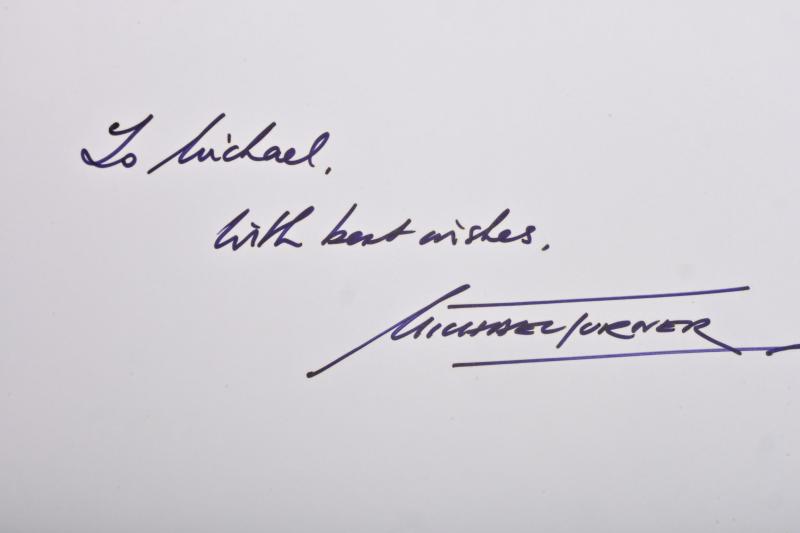 To Michael,
With best wishes,
MICHAEL TURNER